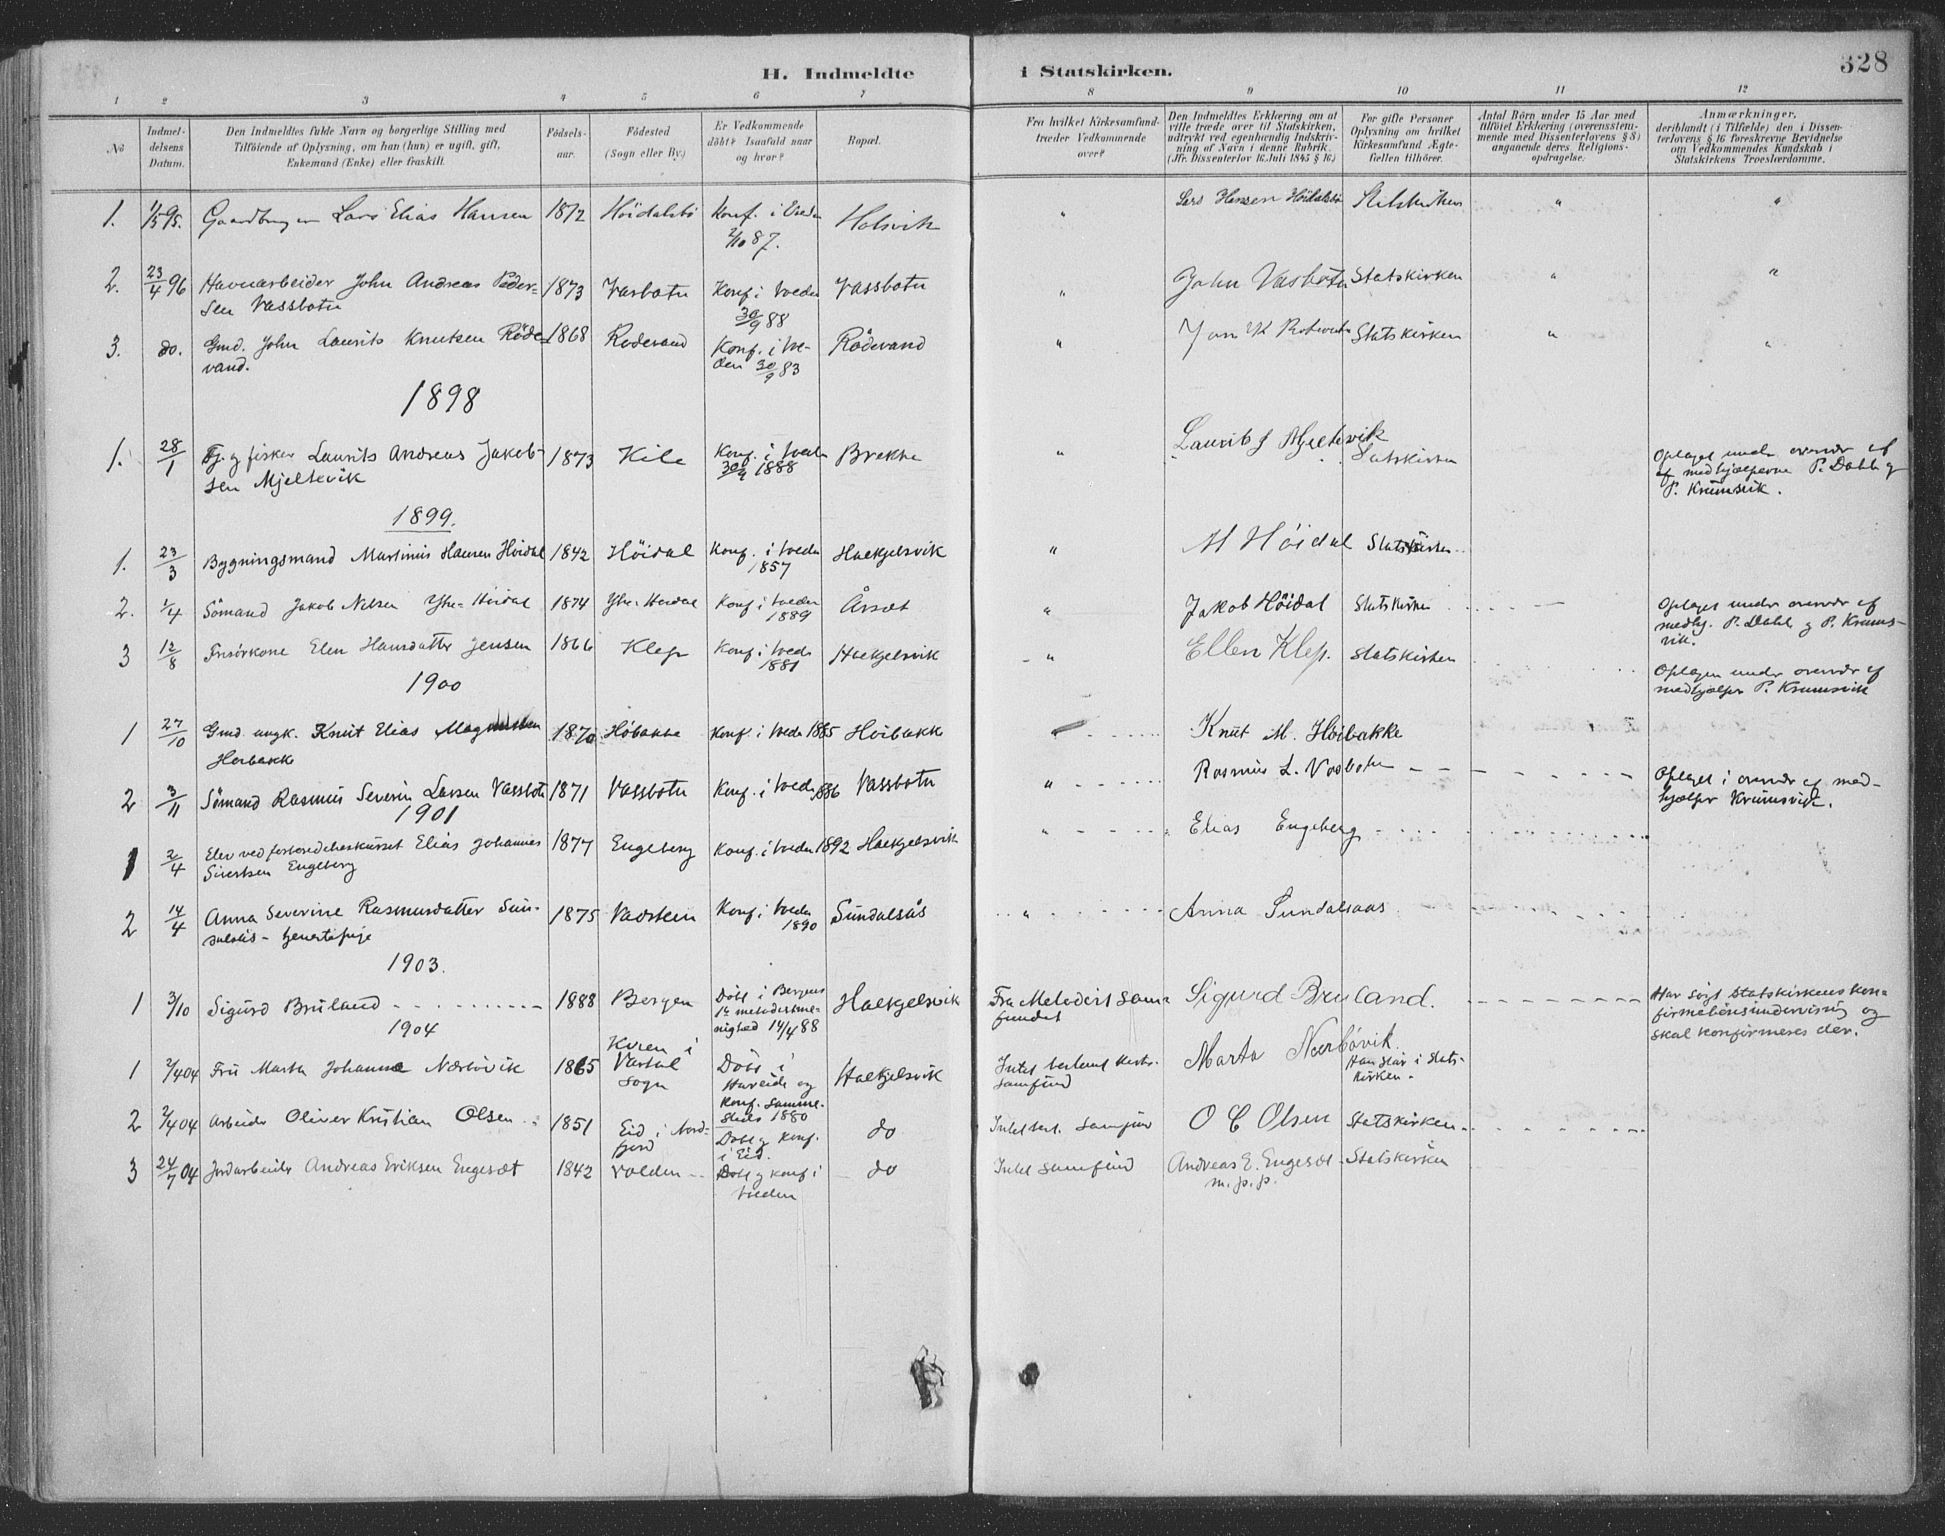 H. Indmeldte i Statskirken.
328
1 2 3 4 5 6 7 8 9 10 11 12
No
Indmel-
delsens
Datum.
Den Indmeldtes fulde Navn og borgerlige Stilling med
Tilföiende af Oplysning, om han (hun) er ugift, gift,
Enkemand (Enke) eller fraskilt.
Födsels-
aar.
Födested
(Sogn eller By.)
Er Vedkommende
döbt? Isaafald naar
og hvor?
Bopæl.
Fra hvilket Kirkesamfund
træder Vedkommende
over?
Den Indmeldtes Erklæring om at
ville træde over til Statskirken,
udtrykt ved egenhændig Indskriv-
ning af Navn i denne Rubrik.
(Jfr. Dissenterlov 16 Juli 1845 § 16.)
For gifte Personer
Oplysning om hvilket
Kirkesamfund Ægte-
fællen tilhörer.
Antal Börn under 15 Aar med
tilföiet Erklæring (overensstem-
mende med Dissenterlovens § 8)
angaaende deres Religions-
opdragelse.
Anmærkninger,
deriblandt (i Tilfælde) den i Dissen-
terlovens § 16 foreskrevne Bevidnelse
om Vedkommendes Kundskab i
Statskirkens Troeslærdomme.
1. 95. Gaardbruger Lars Elias Hansen 1872 Höidalsbö Konf. i Voeden 2/10 87. Holsvik " Lars Hansen Höidalsbö Statskirken " "
2. 23/4 96 Havnearbeider John Andreas Peder-
sen Vassbotn 1873 Vasbotn Konf. i Voeden 30/9 88 Vassbotn " John Vasbotn Statskirken " "
3. do. Gmd. John Laurits Knutsen Röde-
vand. 1868 Rodevand Konf. i Vo-
den 30/9 83 Rödevand " Statskirken " "
1898
1. 28/1 Fj. og fisker Laurits Andreas Jakob-
sen Mjeltevik 1873 Kile Konf. i Voeden 30/9 1888 Brekke " Laurits J Mjeltevik Statskirken Optaget under overvær af
af medhjælperne P. Dahle og
P. Krumsvik.
1899.
1. 23/3 Bygningsmand Martinus Hansen Höidal 1842 Höidal Konf. i Voeden 1857 Haekjelsvik " M Höidal Statskirken
2. 1/4 Sömand Jakob Nilsen Ytre-Höidal 1874 Ytre-Höidal Konf i Voeden 1889 Årset " Jakob Höidal Statskirken Optaget under overvær af
medhj. P. Dahle og P. Krums-
vik.
3 12/8 Frisörkone Elen Hansdatter Jensen 1866 Klep Konf. i Voeden 1881 Haekjelsvik " Ellen Klep. Statskirken Optagen under overvær af
medhjælper P. Krumsvik
1900
1 27/10 Gmd. ungk. Knut Elias Magnussen
Höibakk 1870 Höbakke Konf. i Voeden 1885 Höibakk Knut M. Höibakke
2 3/11 Sömand Rasmus Severin Larsen Vassbotn 1871 Vassbotn Konf. i Voeden 1886 Vassbotn " Rasmus L. Vasbotn Optaget i overvær af med-
hjælper Krumsvik.
1901
1 2/4 Elev ved forberedelseskurset Elias Johannes
Sivertsen Engeberg 1877 Engeberg Konf. i Voeden 1892 Haekjelsvik " Elias Engeberg
2 14/4 Anna Severine Rasmusdatter Sun-
dalsås - tjenestepige 1875 Vadstein Konf. i Voeden 1890 Sundalsås " Anna Sundalsaas
1903.
1 3/10 Sigurd Bruland 1888 Bergen Döbt i Bergens
1e metodistme-
nighed 14/4 88 Haekjelsvik Fra Metodist Sam-
fundet Sigurd Bruland. Har sögt Statskirkens kon-
firmationsundervisning og
skal konfirmeres der.
1904
1 2/4 04 Fru Marta Johanne Nærbövik 1865 Kvien i
Vartdal
sogn Döbt i
Hareide og
konf. samme-
steds 1880 Haekjelsvik Intet bestemt kirke-
samfund Marta Nærbövik. Han står i Stats-
kirken.
2 2/4 04 Arbeider Oliver Kristian Olsen 1851 Eid i Nord-
fjord Döbt og konf.
i Eid. do Intet best. samfund O C Olsen Statskirken
3 24/7 04 Jordarbeider Andreas Eriksen Engeset 1842 Volden Döbt og konf i
Voeden do Intet samfund Andreas E. Engeset
m. p. p. Statskirken